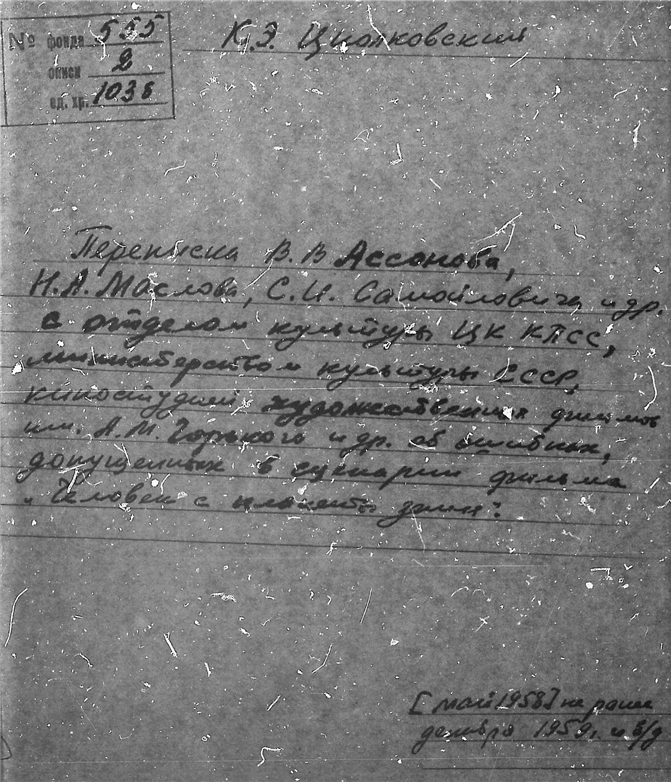 № фонда 555
описи 2
ед. хр. 1038
К.Э. Циолковский
Переписка В.В Ассонова,
Н.А. Маслова, С.И. Самойловича и др.
с отделом культуры ЦК КПСС,
министерством культуры СССР,
киностудией художественных фильмов
им. А.М. Горького и др. об ошибках,
допущенных в сценарии фильма
"Человек с планеты земля".
[май 1958] не ранее
декабря 1959г. и б/д